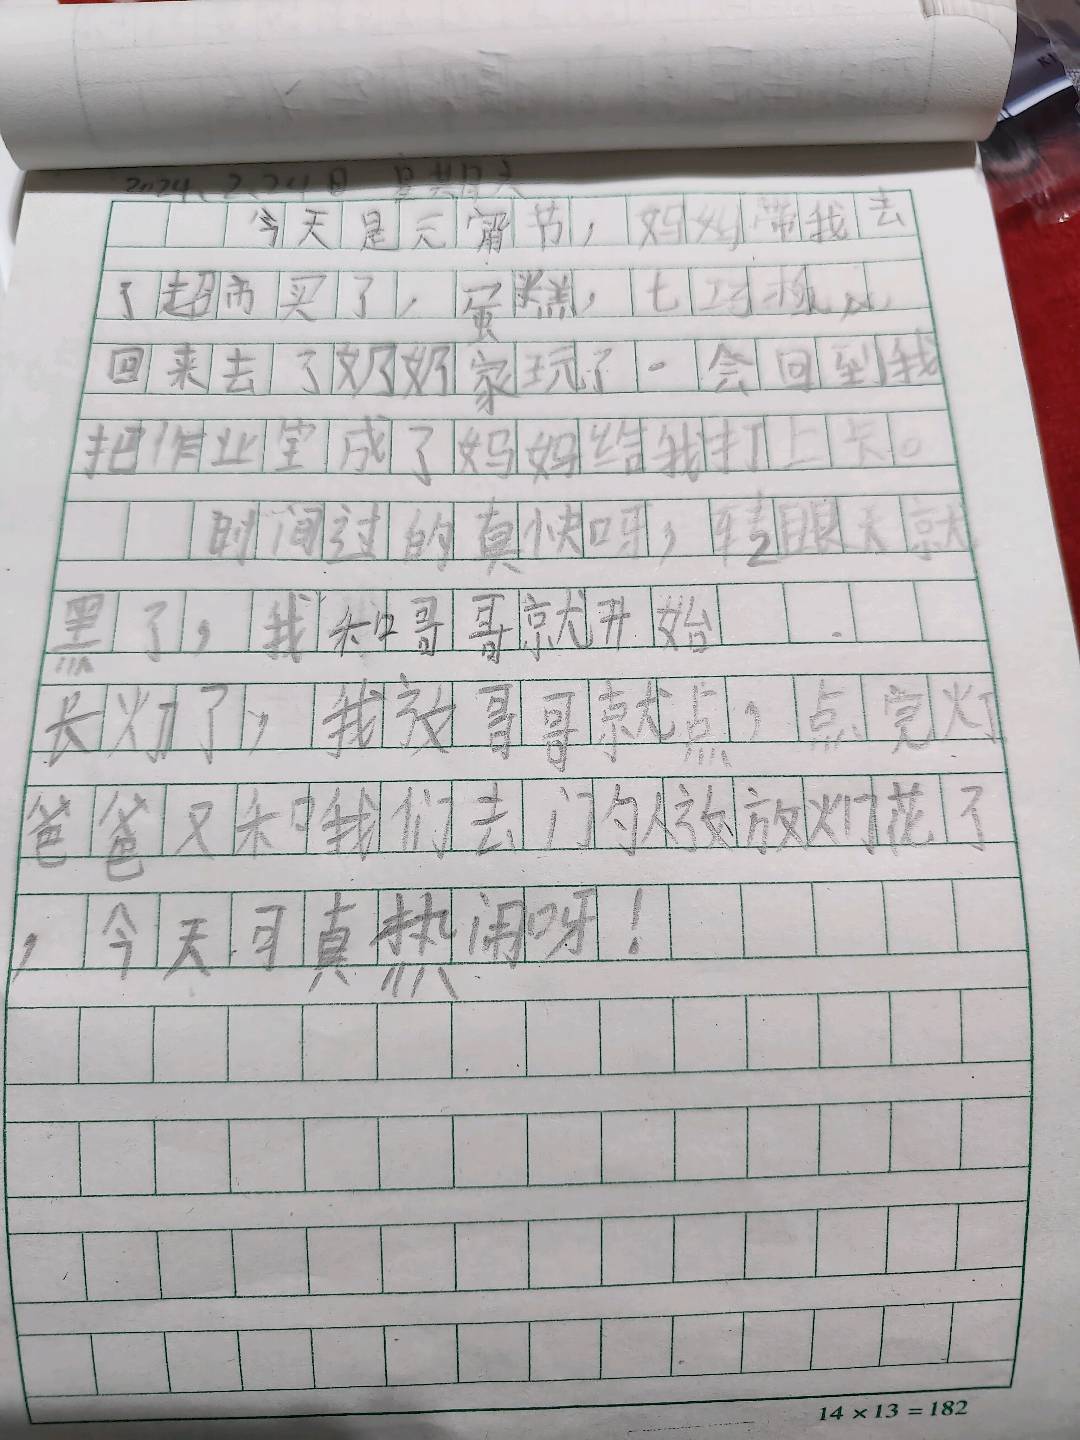 2024、2.24日 星期日天
今天是元宵节，妈妈带我去
了超市买了，蛋糕，七巧板，
回来去了奶奶家玩了一会回到我
把作业完成了妈妈给我打上卡。
时间过的真快呀，转眼天就
黑了，我和哥哥就开始
长灯了，我放哥哥就点，点完灯
爸爸又和我们去门外放放灯花了
，今天可真热闹呀！
14×13=182